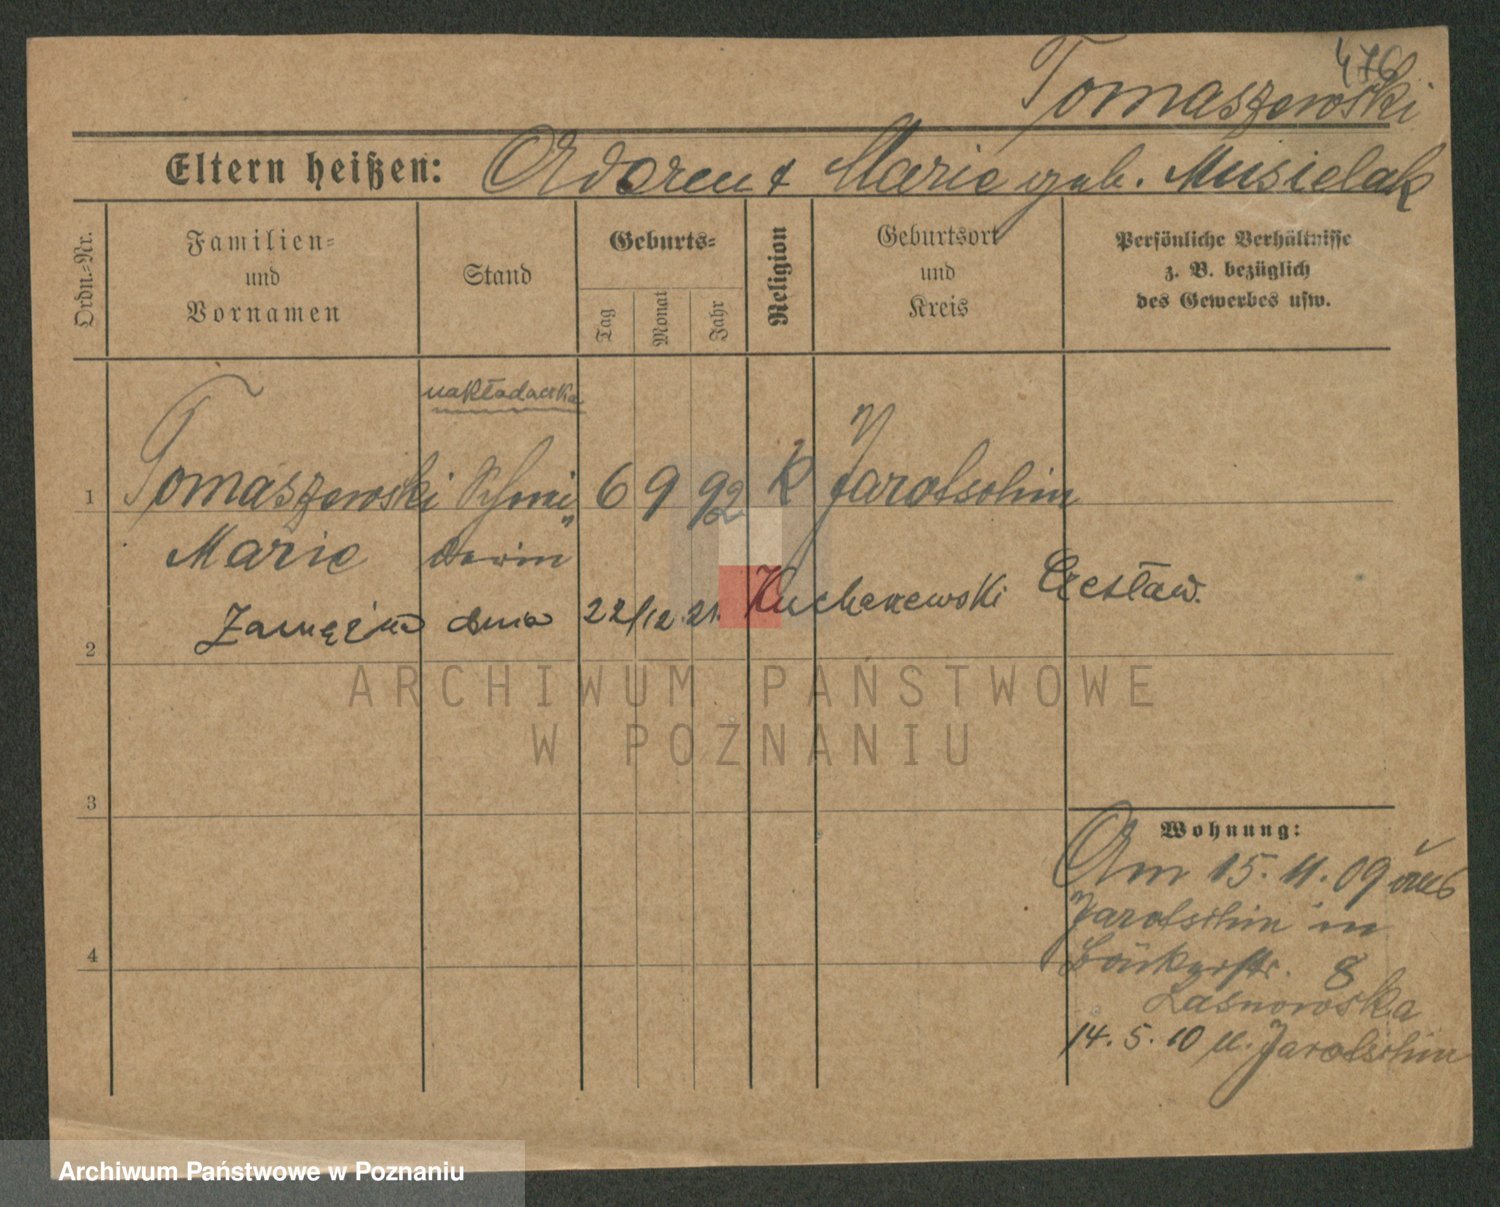 476
Tomaszewski
Eltern heißen: Marie geb. Musielak
Ordn.-Nr.
Familien-
und
Vornamen
Stand
Geburts-
Tag
Monat
Jahr
Religion
Geburtsort
und
Kreis
Persönliche Verhältnisse
z. B. bezüglich
des Gewerbes usw.
nakładaczka
1 Tomaszewski 6 9 92 K Jarotschin
Marie
2 Zamężna dnia 22/12 21. Czesław.
3
4
Wohnung:
Am 15. 11. 09 aus
Jarotschin in
8
14. 5. 10 n. Jarotschin
ARCHIWUM PAŃSTWOWE
W POZNANIU
Archiwum Państwowe w Poznaniu